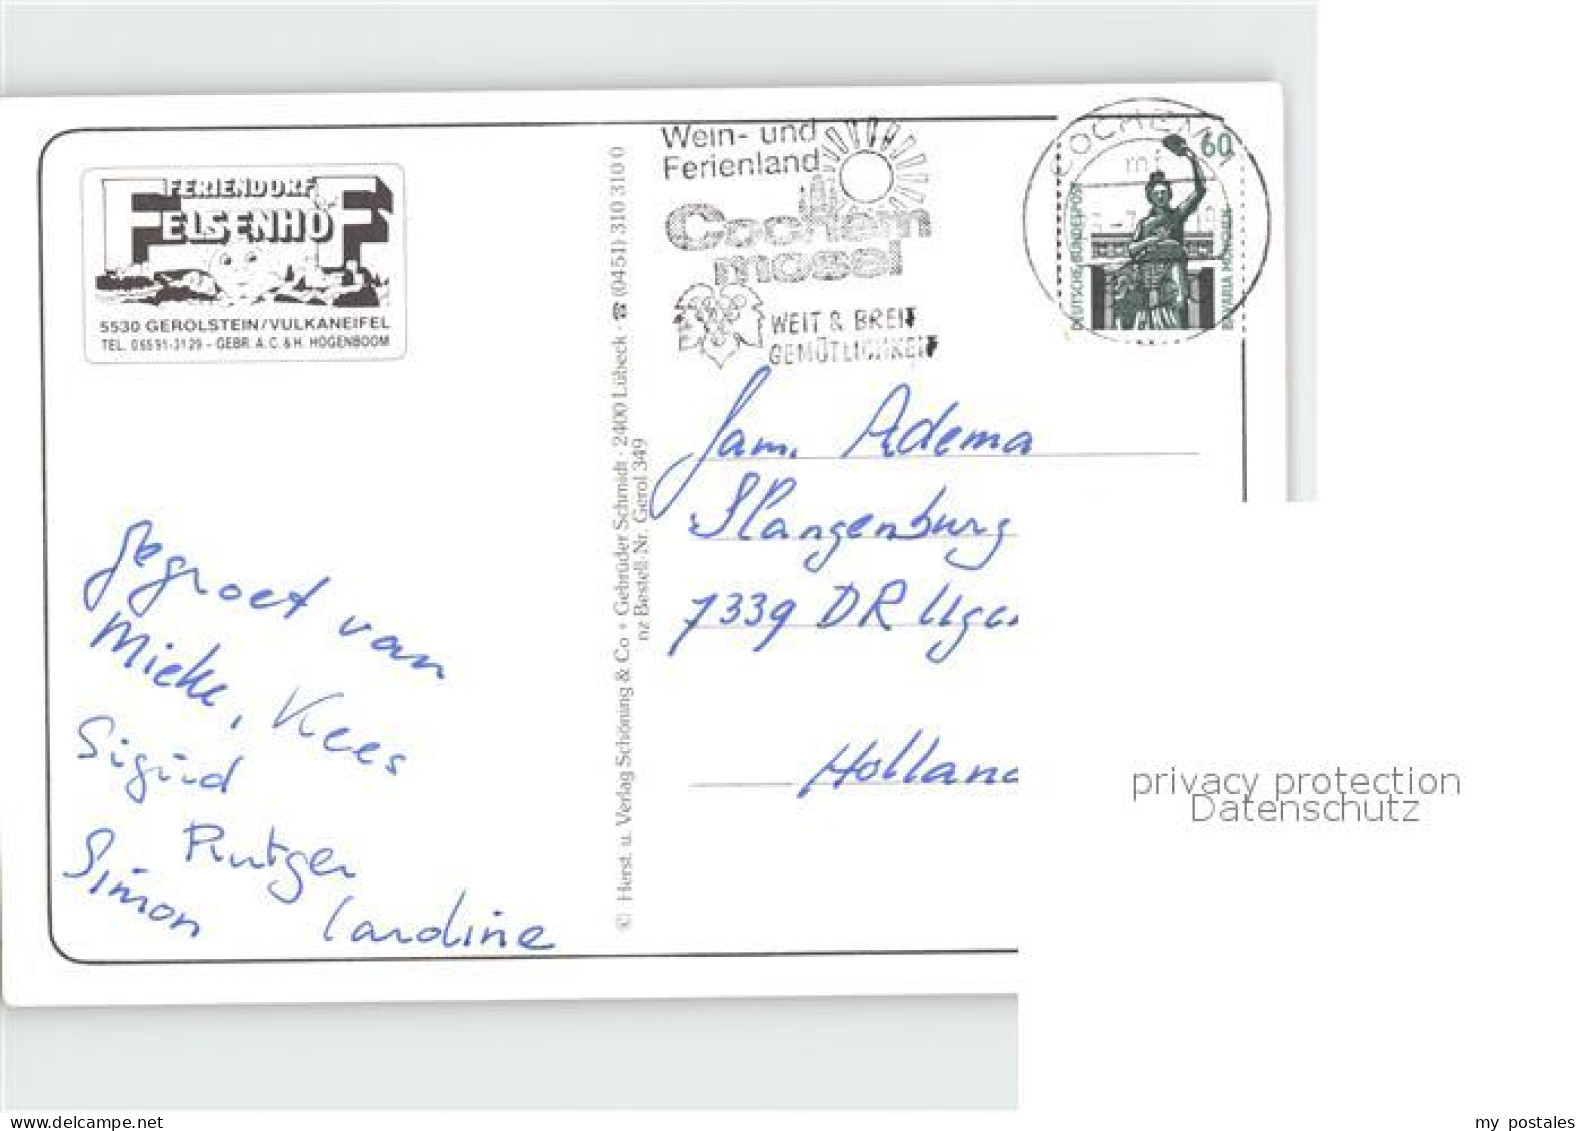 FERIENDORF
FELSENHOF
5530 GEROLSTEIN/VULKANEIFEL
TEL. 06591-3129 - GEBR. A.C. & H. HOGENBOOM
gegroet van
Mieke, Kees
Sigrid
Rutger
Simon Caroline
© Herst. u. Verlag Schöning & Co + Gebrüder Schmidt · 2400 Lübeck · ☎ (0451) 310 310 0
nz Bestell-Nr. Gerol 349
Wein- und
Ferienland
Cochem
mosel
WEIT & BREIT
GEMÜTLICHKEIT
COCHEM
60
DEUTSCHE BUNDESPOST
BAVARIA MÜNCHEN
fam. Adema
Slangenburg
7339 DR Ugc
Holland
privacy protection
Datenschutz
delcampe.net
my postales